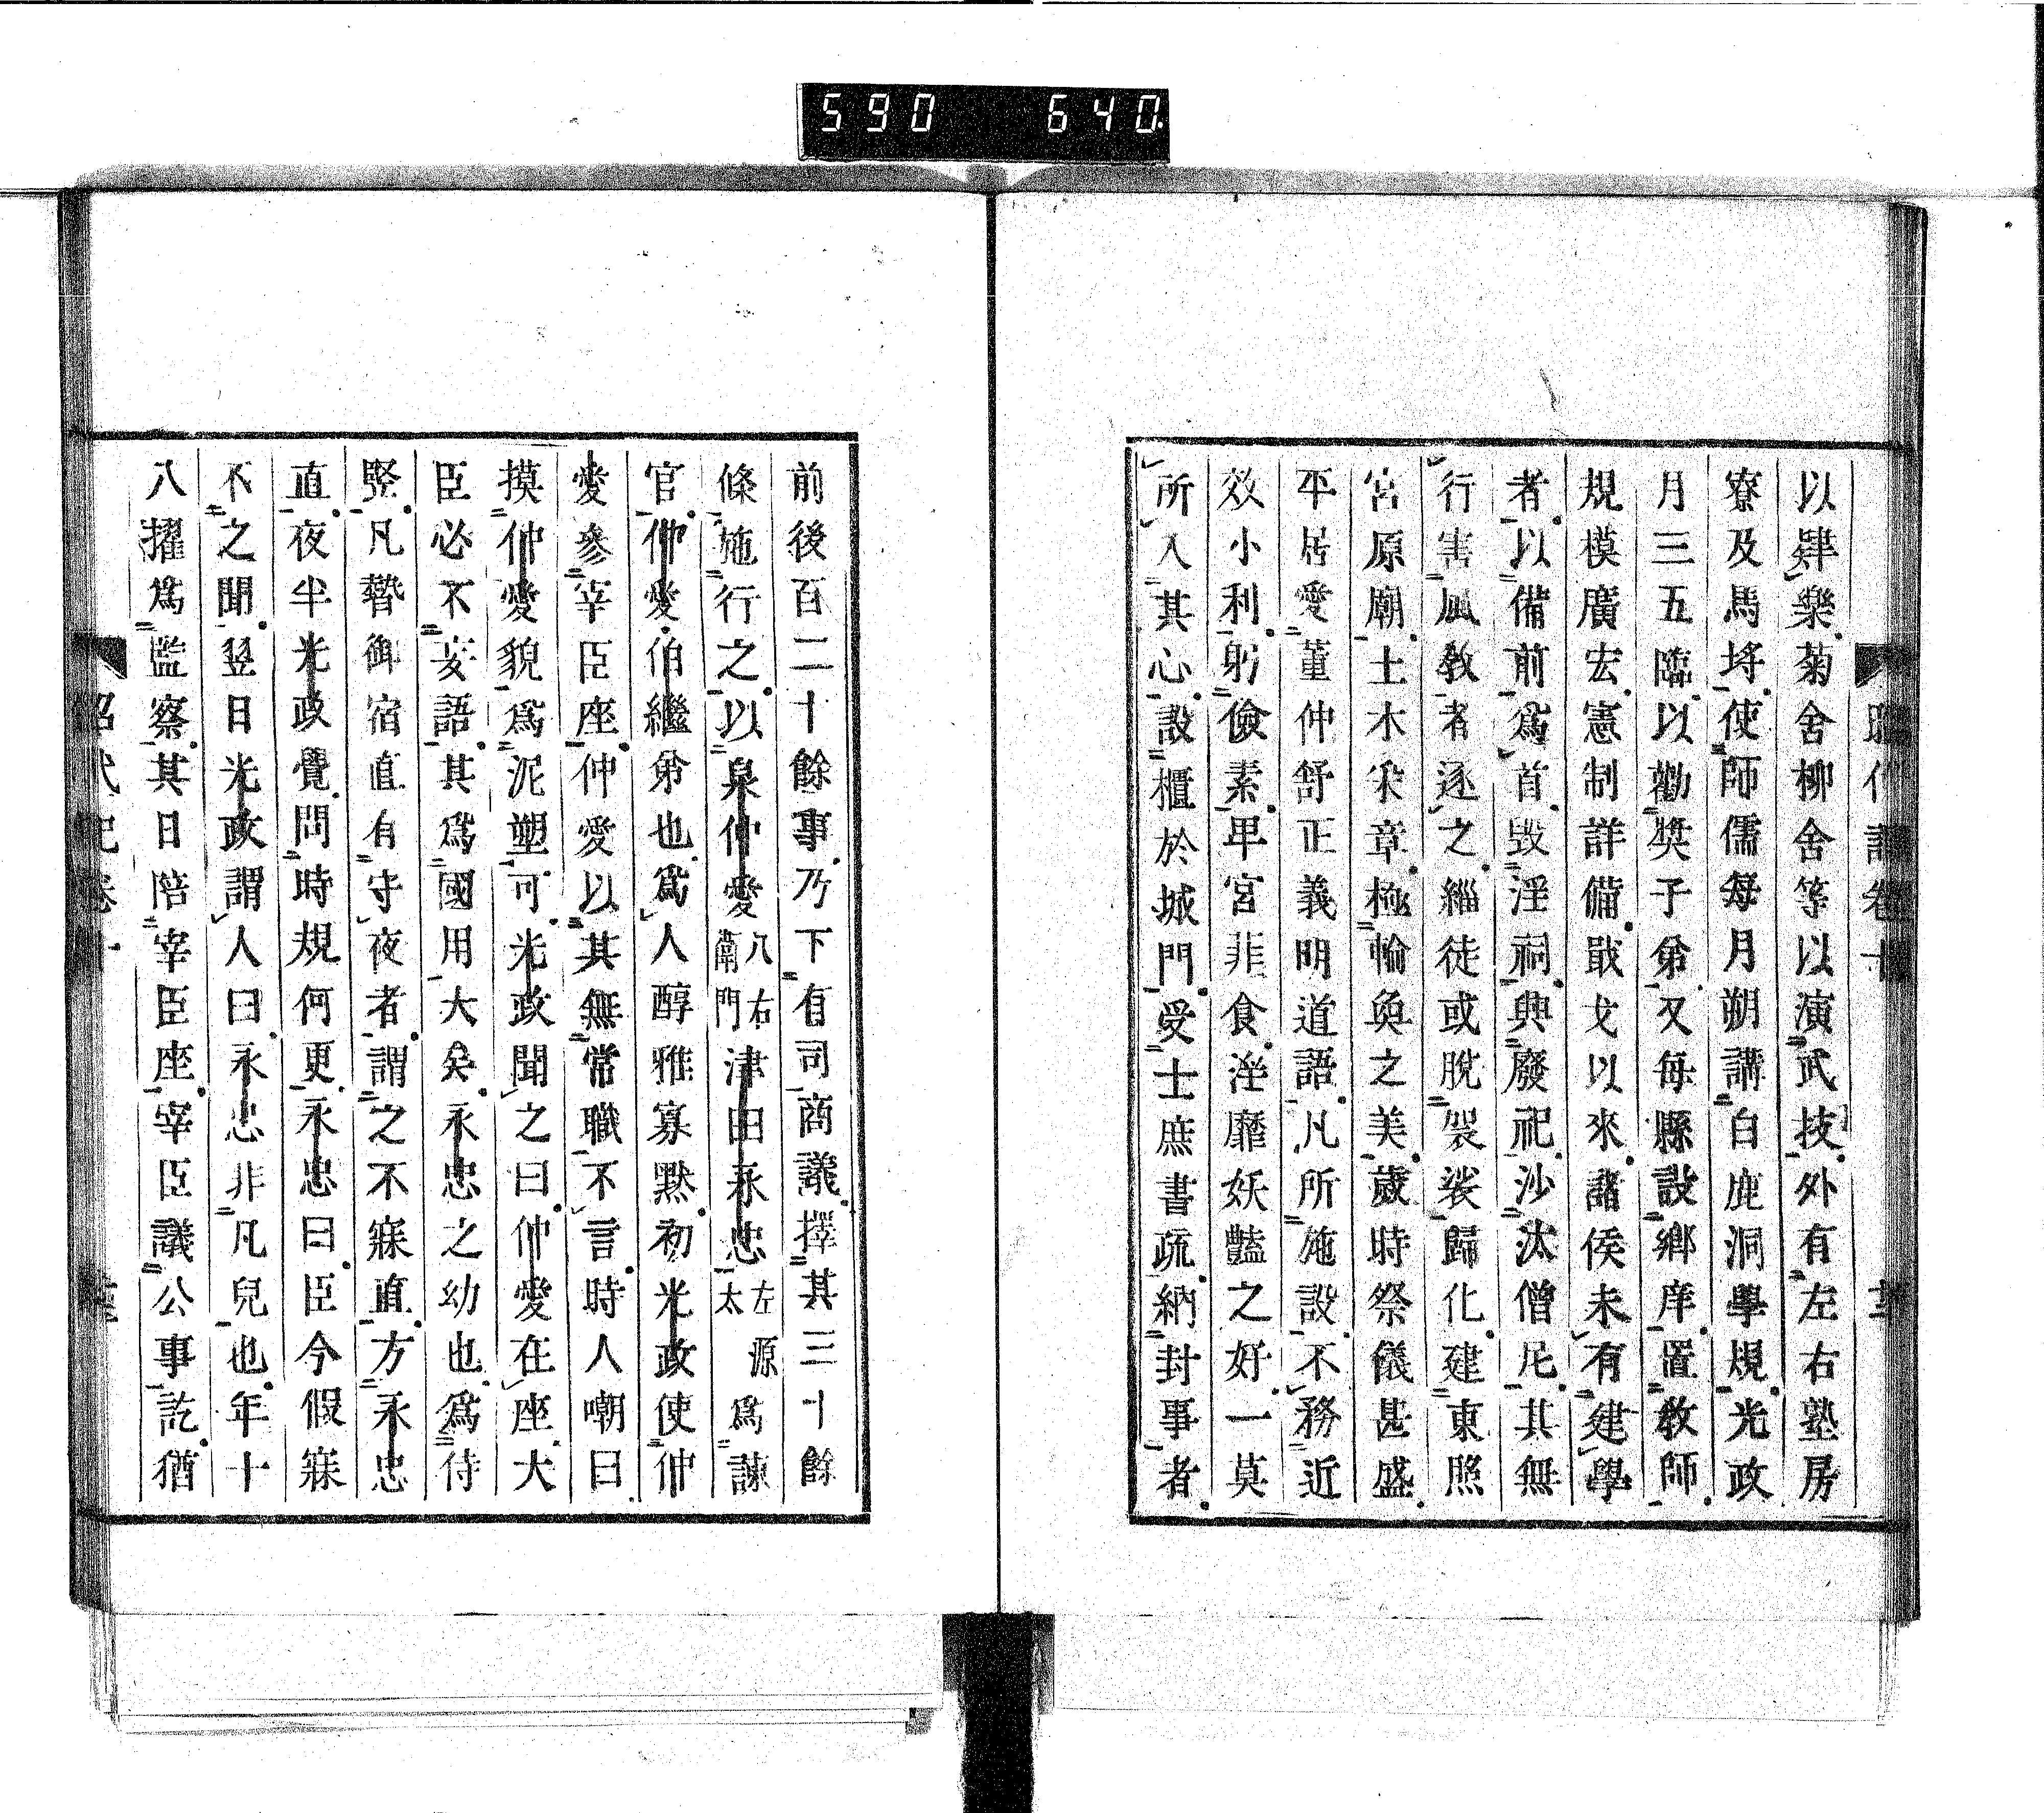 590 640
以肄樂菊舍柳舍等以演武技外有左右塾房
寮及馬埓使師儒每月朔講白鹿洞學規光政
月三五臨以勸奬子弟又每縣設鄉庠置敎師
規模廣宏憲制詳備戢戈以來諸侯未有建學
者以備前爲首毀淫祠興廢祀沙汰僧尼其無
行害風敎者逐之緇徒或脫袈裟歸化建東照
宮原廟土木釆章極輪奐之美歲時祭儀甚盛
平居愛董仲舒正義明道語凡所施設不務近
效小利躬儉素卑宮菲食淫靡妖豔之好一莫
所入其心設櫃於城門受士庶書疏納封事者
前後百二十餘事乃下有司商議擇其三十餘
條施行之以泉仲愛八右衛門津田永忠左源太爲諫
官仲愛伯繼弟也爲人醇雅寡默初光政使仲
愛參宰臣座仲愛以其無常職不言時人嘲曰
摸仲愛貌爲泥塑可光政聞之曰仲愛在座大
臣必不妄語其爲國用大矣永忠之幼也爲侍
竪凡暬御宿直有守夜者謂之不寐直方永忠
直夜半光政覺問時規何更永忠曰臣今假寐
不之聞翌日光政謂人曰永忠非凡兒也年十
八擢爲監察其日陪宰臣座宰臣議公事訖猶